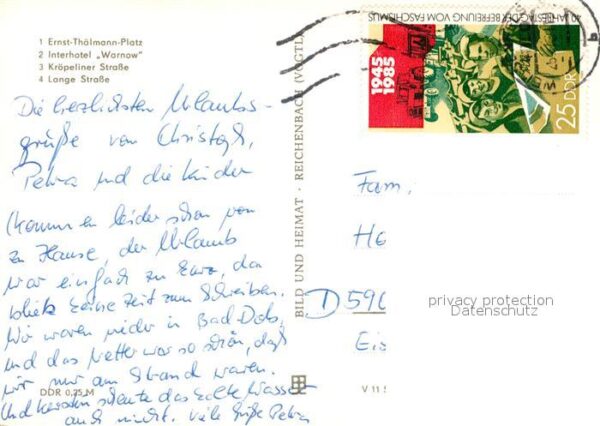 1 Ernst-Thälmann-Platz
2 Interhotel „Warnow"
3 Kröpeliner Straße
4 Lange Straße
Die herzlichsten Urlaubs-
grüße von Christoph,
Petra und die Kinder
Kommen leider schon von
zu Hause, der Urlaub
war einfach zu kurz, da
blieb keine Zeit zum Schreiben.
Wir waren wieder in Bad-Dob.
und das Wetter war so schön, daß
wir nur am Strand waren.
Und scheute das kalte Wasser
auch nicht. Viele Grüße Petra
DDR 0,25 M
BILD UND HEIMAT · REICHENBACH (VOGTL)
V 11
40. JAHRESTAG DER BEFREIUNG VOM FASCHISMUS
1945
1985
25 DDR
Fam.
He
D 590
Eis
privacy protection
Datenschutz